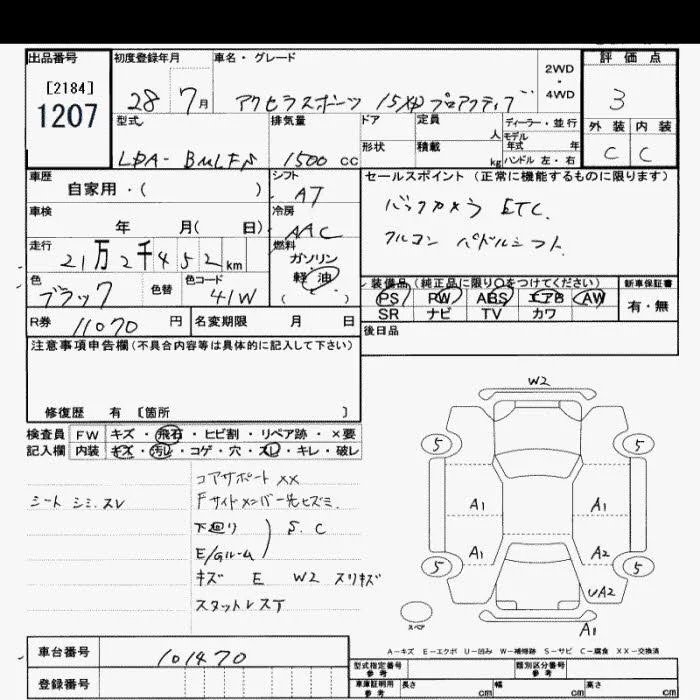 出品番号 初度登録年月 車名・グレード 2WD・4WD 評価点
[2184]
1207
28 7月 アクセラスポーツ 15XD プロアクティブ 3
型式 排気量 ドア 定員 人 ディーラー・並行 外装 内装
モデル年式 年
形状 積載 kg ハンドル 左・右
LDA- BM2FS 1500 CC C C
車歴 シフト セールスポイント(正常に機能するものに限ります)
自家用・( ) AT
バックカメラ ETC.
車検 冷房
年 月( 日) AAC
クルコン パドルシフト
走行 燃料
21万2千452km ガソリン
軽油
( )
色 色替 色コード
ブラック 41W
装備品(純正品に限り〇をつけてください) 新車保証書
PS PW ABS エアB AW 有・無
SR ナビ TV カワ
R券 11070 円 名変期限 月 日
後日品
注意事項申告欄(不具合内容等は具体的に記入して下さい)
修復歴 有 〔箇所 〕
検査員 FW キズ・飛石・ヒビ割・リペア跡・×要
記入欄 内装 キズ・汚レ・コゲ・穴・スレ・キレ・破レ
シート シミ.スレ
コアサポート XX
Fサイドメンバー先ヒズミ.
下廻り S. C
E/Gルーム
キズ E W2 スリキズ
スタットレスT
W2
5 5
A1 A1
A1 A2
5 5
UA2
スペア
A1
A-キズ E-エクボ U-凹み W-補修跡 S-サビ C-腐食 XX-交換済
車台番号 101470
登録番号
型式指定番号 参考 類別区分番号 参考
車庫証明用 参考 長さ cm 幅 cm 高さ cm